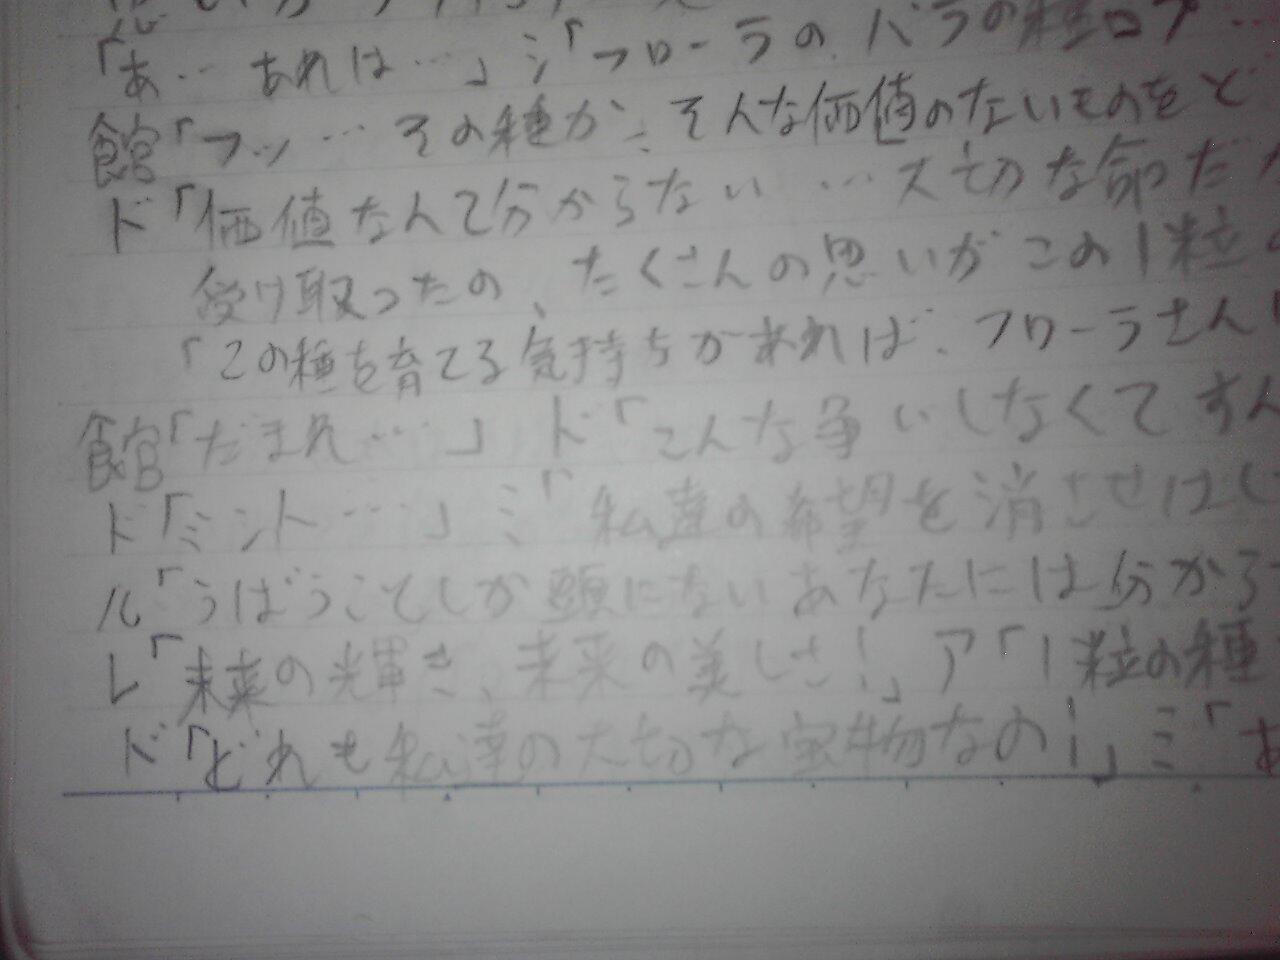 「あ…あれは…」ジ「フローラの、バラの種ロプ…
館「フッ…その種か、そんな価値のないものをど
ド「価値なんて分からない…大切な命だ
受け取ったの、たくさんの思いがこの1粒の
「この種を育てる気持ちがあれば、フローラさん
館「だまれ…」ド「こんな争いしなくてすん
ド「ミント…」ミ「私達の希望を消させはし
ル「うばうことしか頭にないあなたには分から
レ「未来の輝き、未来の美しさ!」ア「1粒の種
ド「どれも私達の大切な宝物なの!」ミ「あ